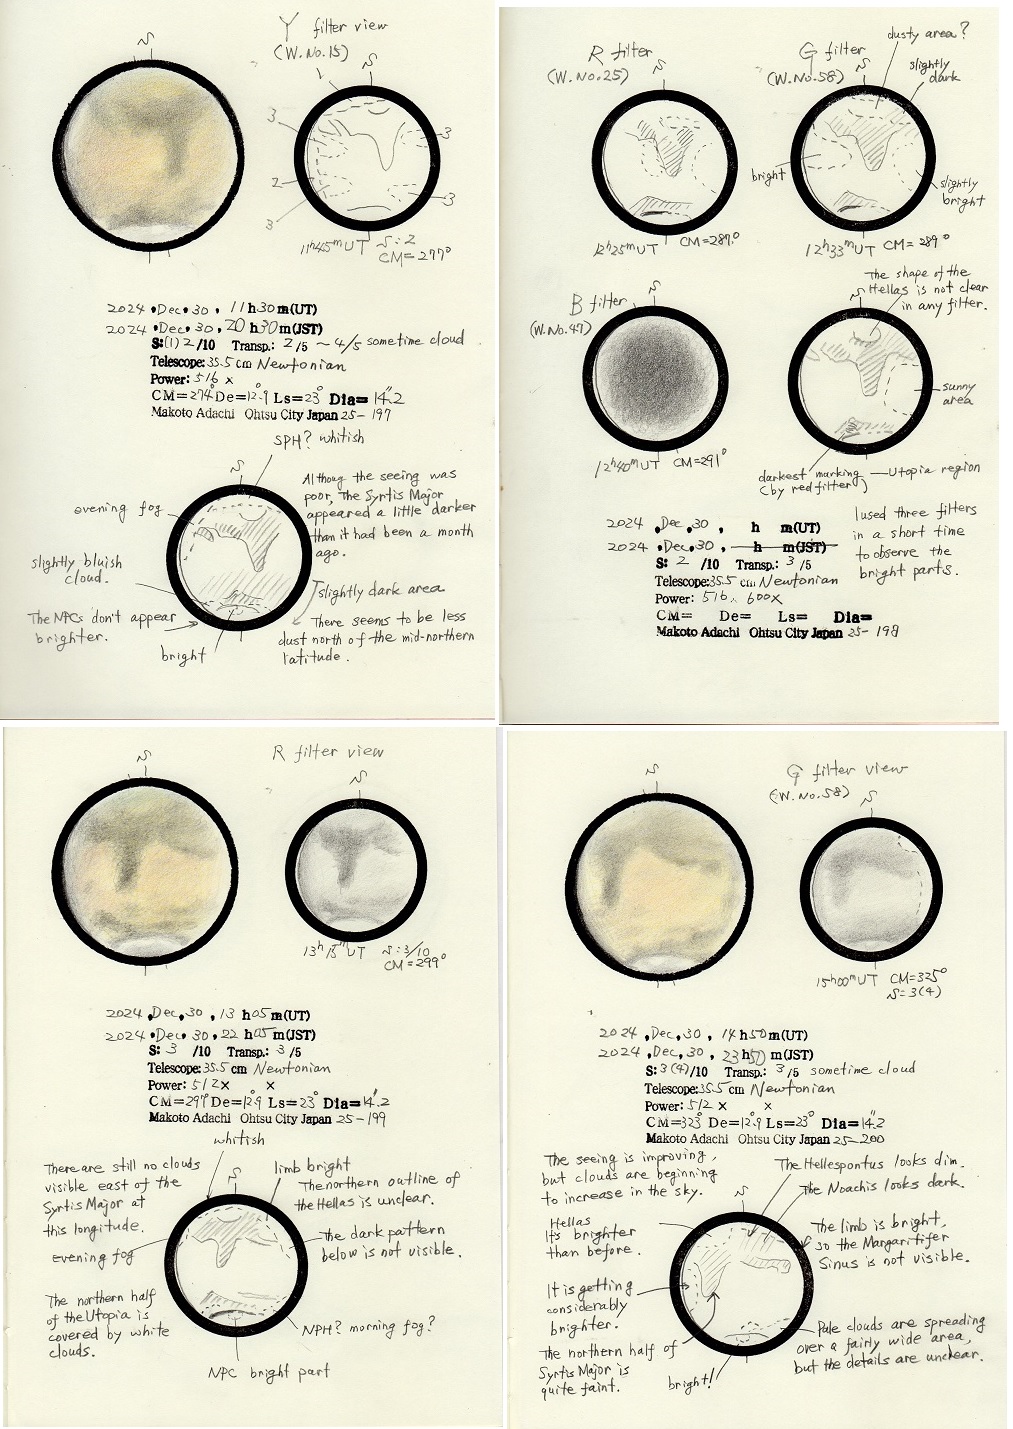 S
Y filter view
(W.No.15)
S
1
3
3
2
3
3
11h45mUT S:2
CM=277°
2024 .Dec.30 , 11 h30m(UT)
2024 .Dec.30 , 20 h30m(JST)
S:(1)2/10 Transp.: 2/5 ~ 4/5 sometime cloud
Telescope:35.5cm Newtonian
Power: 516 x
CM=274° De=12.°9 Ls=23° Dia=14."2
Makoto Adachi Ohtsu City Japan 25-197
SPH? whitish
S
evening fog
Althoug the seeing was
poor, the Syrtis Major
appeared a little darker
than it had been a month
ago.
slightly bluish
cloud.
slightly dark area
The NPCs don't appear
brighter.
There seems to be less
dust north of the mid-northern
latitude.
bright
R filter
(W.No.25)
S
12h25mUT CM=287.°
G filter
(W.No.58)
S
dusty area?
slightly
dark
bright
slightly
bright
12h33mUT CM=289°
B filter
(W.No.47)
S
12h40mUT CM=291°
The shape of the
Hellas is not clear
in any filter.
S
sunny
area
darkest marking — Utopia region
(by red filter)
2024 .Dec.30 , h m(UT)
2024 .Dec.30 , h m(JST)
S: 2 /10 Transp.: 3/5
Telescope:35.5 cm Newtonian
Power: 516x 600x
CM= De= Ls= Dia=
Makoto Adachi Ohtsu City Japan 25-198
I used three filters
in a short time
to observe the
bright parts.
S
R filter view
S
13h15mUT S:3/10
CM=299°
2024 .Dec.30 , 13 h05m(UT)
2024 .Dec.30 , 22 h05m(JST)
S: 3 /10 Transp.: 3/5
Telescope:35.5cm Newtonian
Power: 512x x
CM=297° De=12.°9 Ls=23° Dia=14."2
Makoto Adachi Ohtsu City Japan 25-199
whitish
There are still no clouds
visible east of the
Syrtis Major at
this longitude.
S
limb bright
The northern outline of
the Hellas is unclear.
evening fog
The dark pattern
below is not visible.
The northern half
of the Utopia is
covered by white
clouds.
NPH? morning fog?
NPC bright part
S
G filter view
(W.No.58)
S
15h00mUT CM=325°
S=3(4)
2024 .Dec.30 , 14 h50m(UT)
2024 .Dec.30 , 23 h50m(JST)
S:3(4)/10 Transp.: 3/5 sometime cloud
Telescope:35.5cm Newtonian
Power: 512 x x
CM=323° De=12.°9 Ls=23° Dia=14."2
Makoto Adachi Ohtsu City Japan 25-200
The seeing is improving,
but clouds are beginning
to increase in the sky.
The Hellespontus looks dim.
The Noachis looks dark.
S
Hellas
It's brighter
than before.
The limb is bright,
so the Margaritifer
Sinus is not visible.
It is getting
considerably
brighter.
The northern half of
Syrtis Major is
quite faint.
bright!
Pale clouds are spreading
over a fairly wide area,
but the details are unclear.